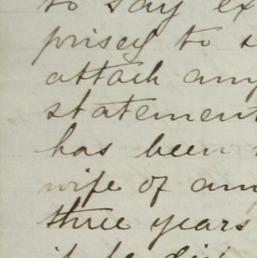 to say ex
prised to s
attach any
statement
has been
wife of am
three years
if he